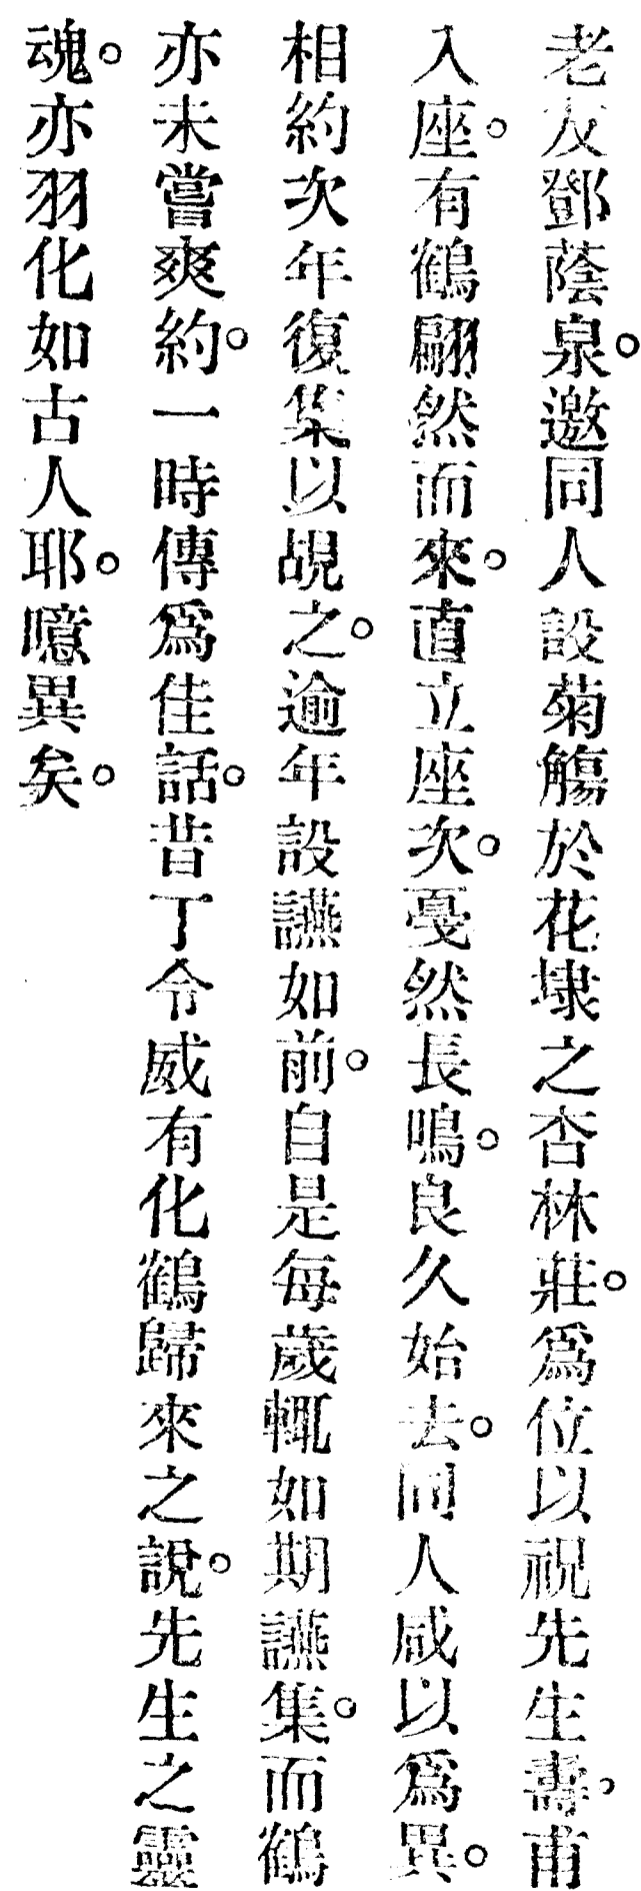 老友鄧蔭泉。邀同人設菊觴於花埭之杏林莊。爲位以祝先生壽。甫
入座。有鶴翩然而來。直立座次。戞然長鳴。良久始去。同人咸以爲異。
相約次年復集以覘之。逾年設讌如前。自是每歲輒如期讌集。而鶴
亦未嘗爽約。一時傳爲佳話。昔丁令威有化鶴歸來之說。先生之靈
魂。亦羽化如古人耶。噫異矣。